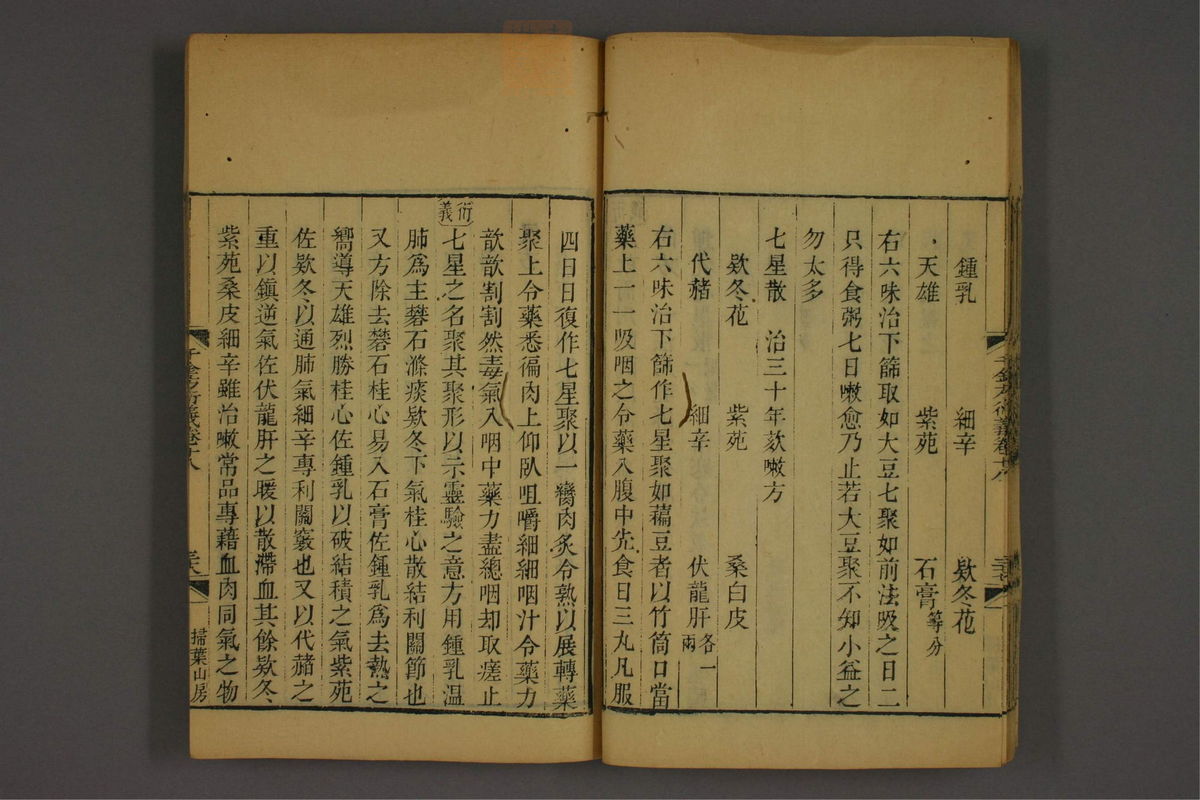 鍾乳 細辛 欵冬花
天雄 紫菀 石膏等分
右六味治下篩取如大豆七聚如前法吸之日二
只得食粥七日嗽愈乃止若大豆聚不知小益之
勿太多
七星散 治三十年欬嗽方
欵冬花 紫菀 桑白皮
代赭 細辛 伏龍肝各一兩
右六味治下篩作七星聚如藊豆者以竹筒口當
藥上一一吸咽之令藥入腹中先食日三丸凡服
四日日復作七星聚以一臠肉炙令熟以展轉藥
聚上令藥悉徧肉上仰臥咀嚼細細咽汁令藥力
歆歆割割然毒氣入咽中藥力盡總咽却取瘥止
衍義
七星之名聚其聚形以示靈驗之意方用鍾乳温
肺爲主礬石滌痰欵冬下氣桂心散結利關節也
又方除去礬石桂心易入石膏佐鍾乳爲去熱之
嚮導天雄烈勝桂心佐鍾乳以破結積之氣紫菀
佐欵冬以通肺氣細辛專利關竅也又以代赭之
重以鎮逆氣佐伏龍肝之暖以散滯血其餘欵冬
紫菀桑皮細辛雖治嗽常品專藉血肉同氣之物
千金方衍義卷十八
掃葉山房